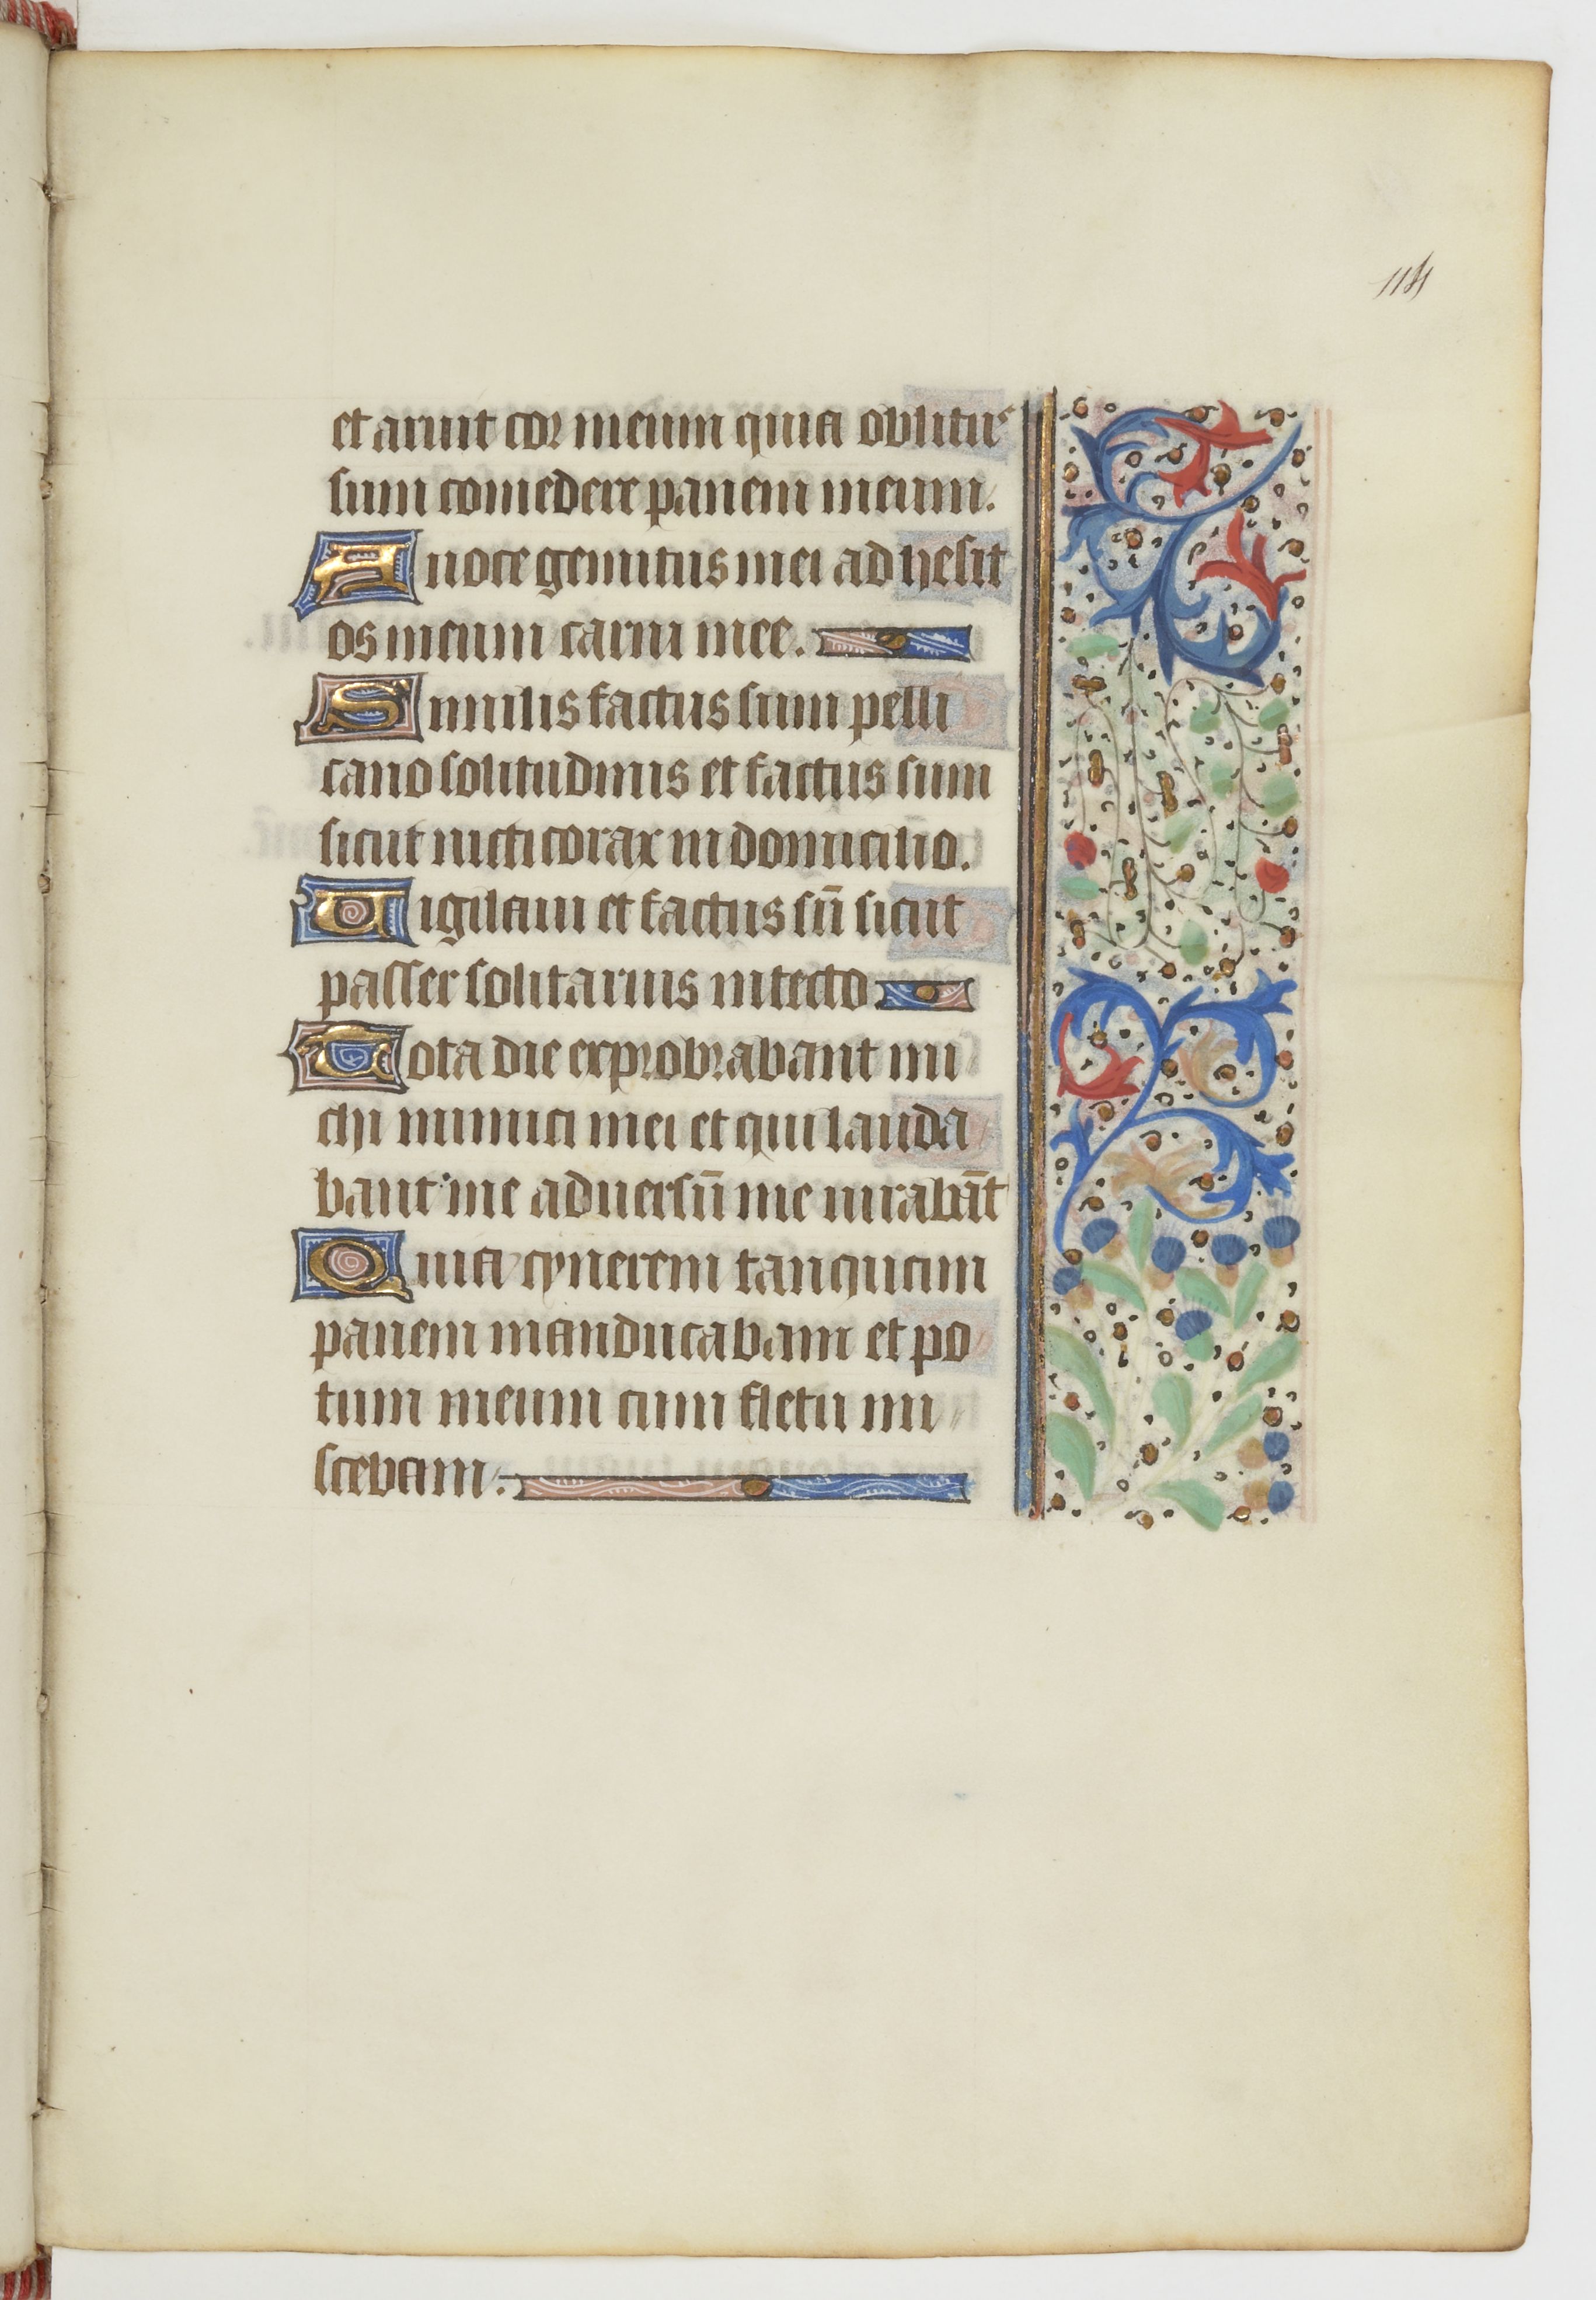 114
et aruit cor meum quia oblitus
sum comedere panem meum.
A uoce gemitus mei adhesit
os meum carni mee.
Similis factus sum pelli
cano solitudinis et factus sum
sicut nicticorax in domicilio.
Uigilaui et factus sū sicut
passer solitarius in tecto
Tota die exprobrabant mi
chi inimici mei et qui lauda
bant me aduersū me iurabāt
Quia cynerem tanquam
panem manducabam et po
tum meum cum fletu mi
scebam.